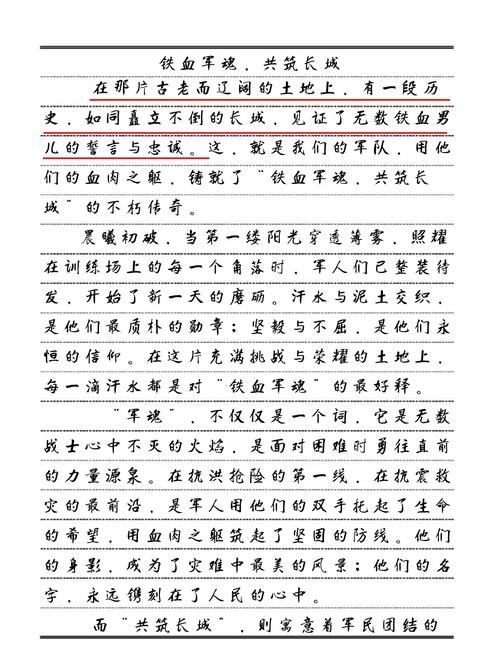 铁血军魂，共筑长城
在那片古老而辽阔的土地上，有一段历
史，如同矗立不倒的长城，见证了无数铁血男
儿的誓言与忠诚。这，就是我们的军队，用他
们的血肉之躯，铸就了“铁血军魂，共筑长
城”的不朽传奇。
晨曦初破，当第一缕阳光穿透薄雾，照耀
在训练场上的每一个角落时，军人们已整装待
发，开始了新一天的磨砺。汗水与泥土交织，
是他们最质朴的勋章；坚毅与不屈，是他们永
恒的信仰。在这片充满挑战与荣耀的土地上，
每一滴汗水都是对“铁血军魂”的最好释。
“军魂”，不仅仅是一个词，它是无数
战士心中不灭的火焰，是面对困难时勇往直前
的力量源泉。在抗洪抢险的第一线，在抗震救
灾的最前沿，是军人用他们的双手托起了生命
的希望，用血肉之躯筑起了坚固的防线。他们
的身影，成为了灾难中最美的风景；他们的名
字，永远镌刻在了人民的心中。
而“共筑长城”，则寓意着军民团结的